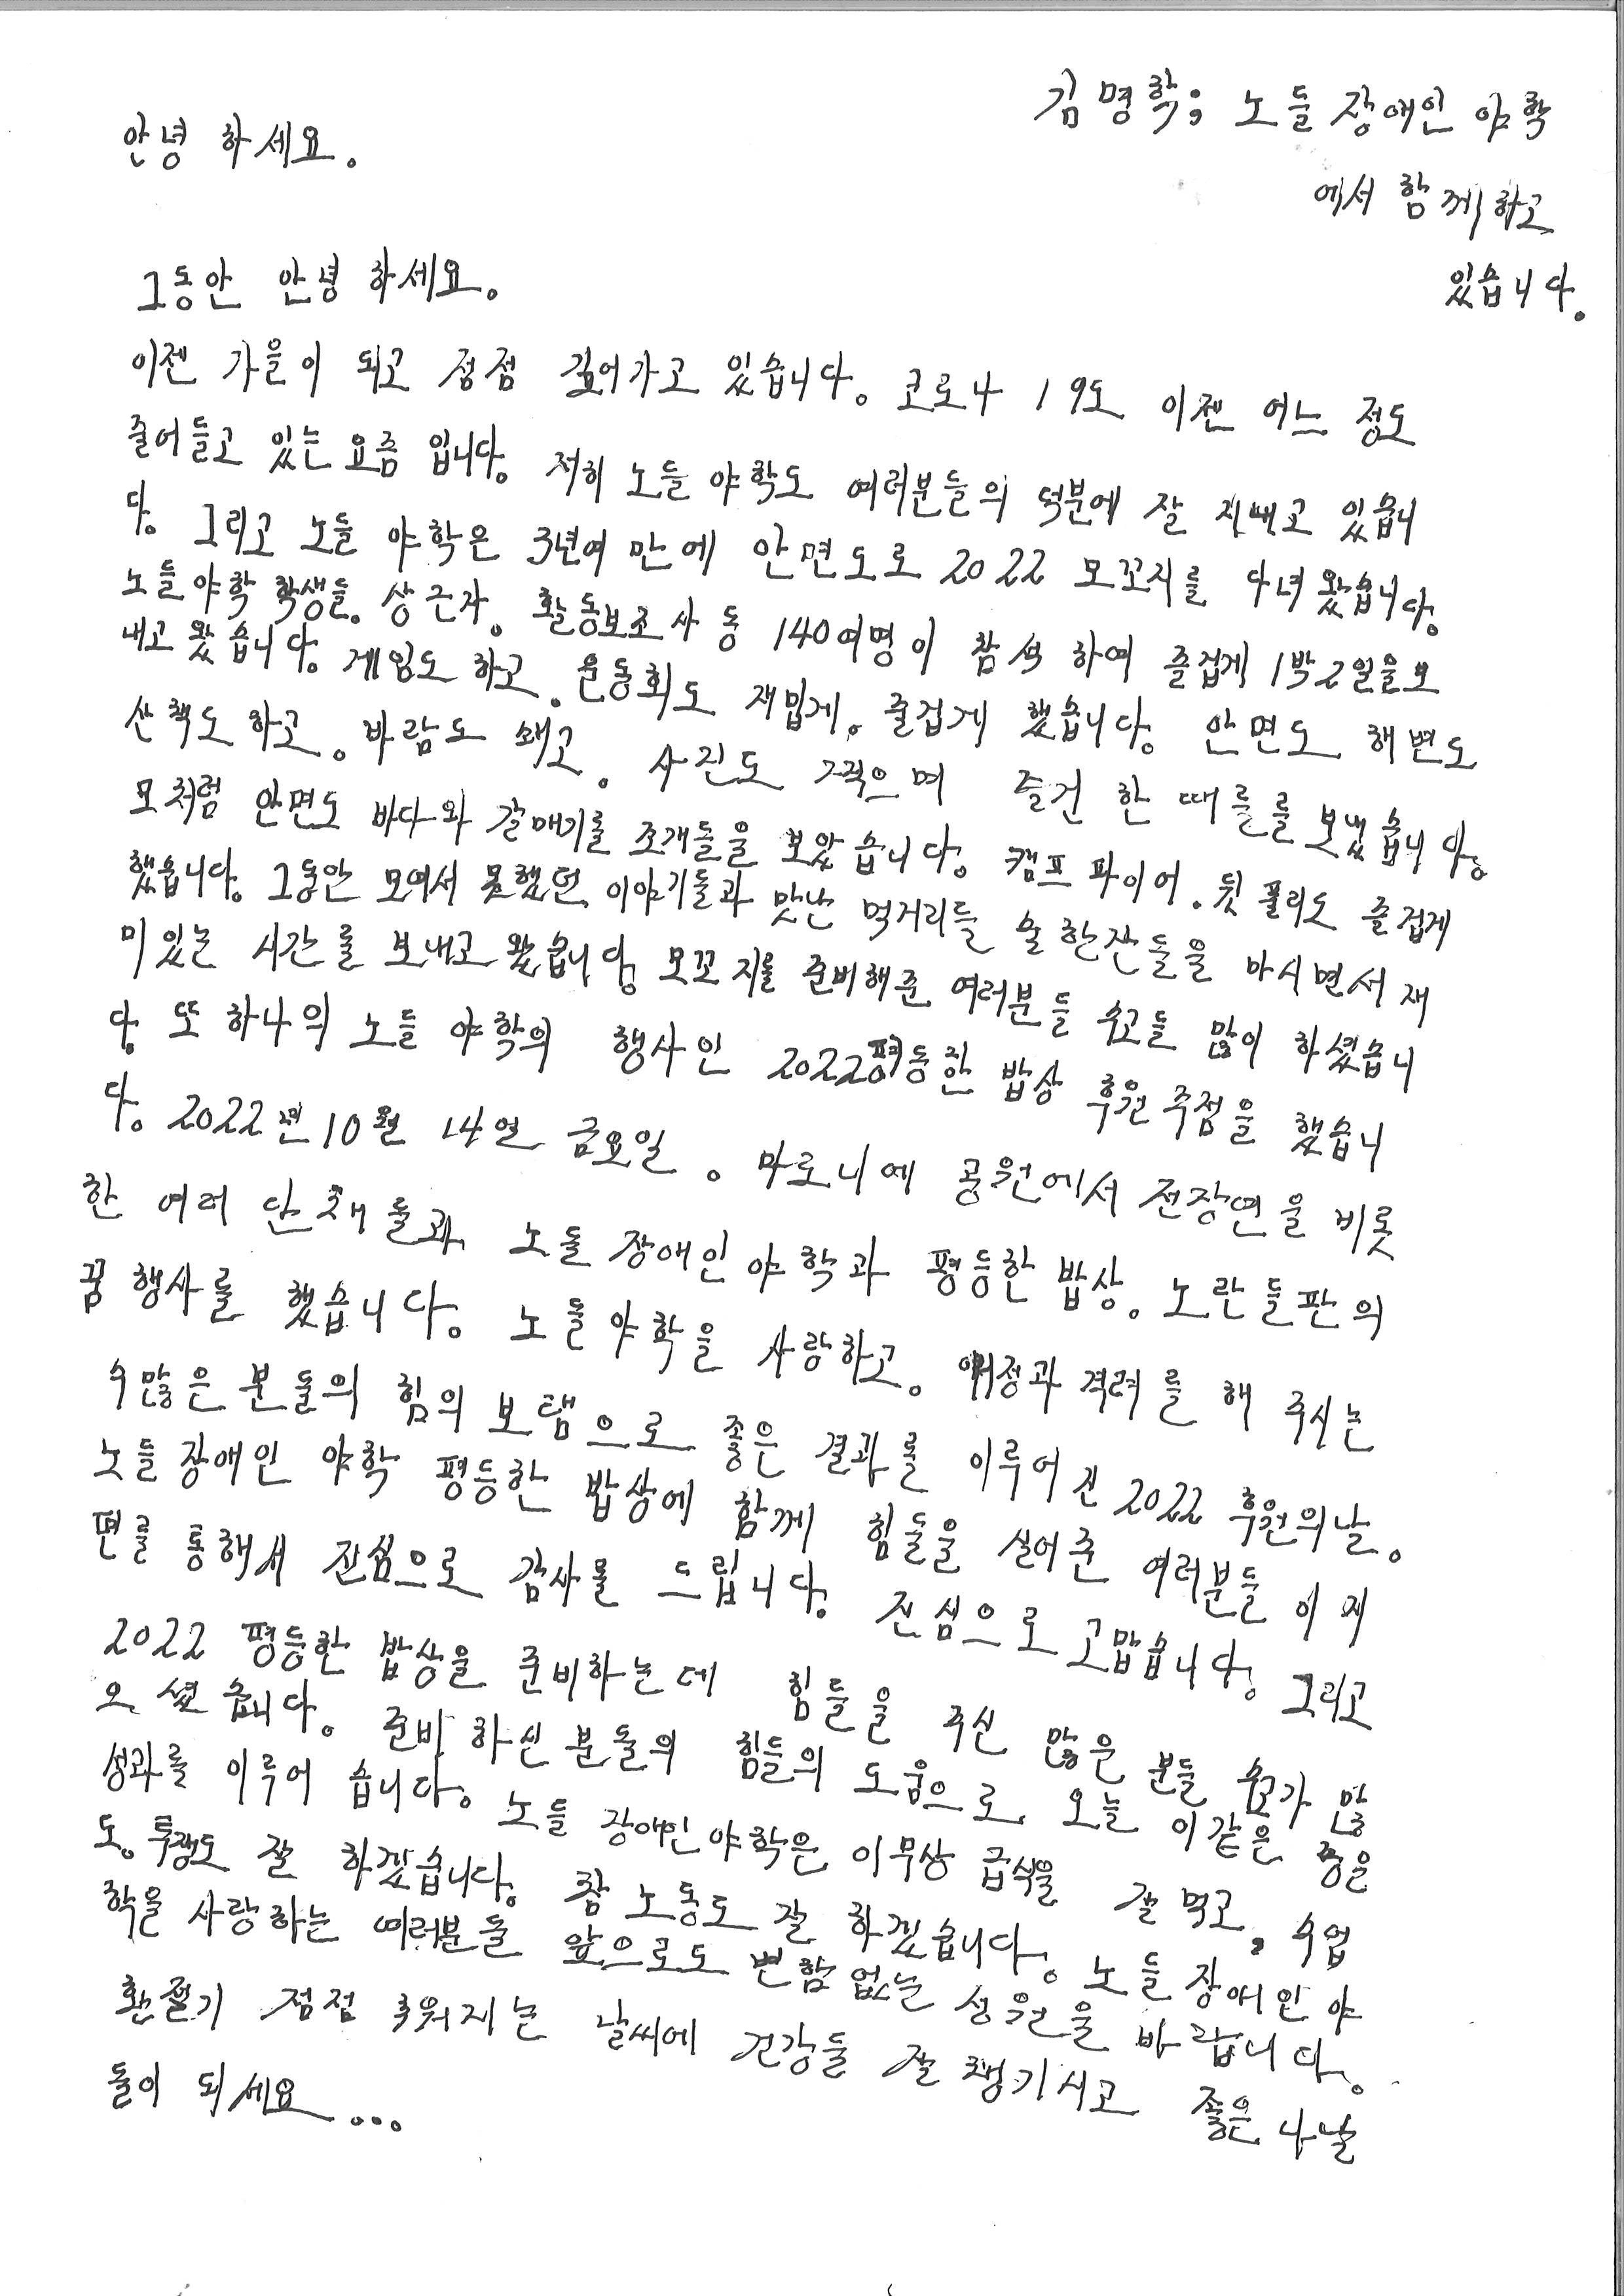 김명학; 노들장애인야학
에서 함께하고
있습니다.
안녕 하세요.
그동안 안녕 하세요.
이젠 가을이 되고 점점 깊어가고 있습니다. 코로나 19도 이젠 어느 정도
줄어들고 있는 요즘 입니다. 저희 노들야학도 여러분들의 덕분에 잘 지내고 있습니
다. 그리고 노들 야학은 3년여 만에 안면도로 2022 모꼬지를 다녀왔습니다.
노들야학 학생들. 상근자. 활동보조사 등 140여명이 참석 하여 즐겁게 1박2일을 보
내고 왔습니다. 게임도 하고. 운동회도 재밉게. 즐겁게 했습니다. 안면도 해변도
산책도 하고. 바람도 쐐고. 사진도 찍으며 즐건 한 때를를 보냈습니다.
모처럼 안면도 바다와 갈매기를 조개들을 보았습니다. 캠프파이어. 뒷풀리도 즐겁게
했습니다. 그동안 모여서 못했던 이야기들과 맛난 먹거리들 술한잔들을 마시면서 재
미있는 시간를 보내고 왔습니다. 모꼬지를 준비해준 여러분들 수고들 많이 하셨습니
다. 또 하나의 노들 야학의 행사인 2022평등한 밥상 후원주점을 했습니
다. 2022년 10월 14일 금요일. 마로니에 공원에서 전장연을 비롯
한 여러 단체들과 노들장애인야학과 평등한 밥상. 노란들판의
꿈 행사를 했습니다. 노들야학을 사랑하고. 애정과 격려를 해 주시는
수많은 분들의 힘의 보탬으로 좋은 결과를 이루어진 2022 후원의날.
노들장애인 야학 평등한 밥상에 함께 힘들을 실어준 여러분들 이 지
면를 통해서 진심으로 감사를 드립니다. 진심으로 고맙습니다. 그리고
2022 평등한 밥상을 준비하는데 힘들을 주신 많은 분들 수고가 많
으셨습니다. 준비하신 분들의 힘들의 도움으로 오늘 이같은 좋은
성과를 이루어 습니다. 노들 장애인야학은 이무상 급식을 잘 먹고. 수업
도. 투쟁도 잘 하겠습니다. 참 노동도 잘 하겠습니다. 노들장애인야
학을 사랑하는 여러분들 앞으로도 변함없는 성원을 바랍니다.
환절기 점점 추워지는 날씨에 건강들 잘 챙기시고 좋은 나날
들이 되세요...